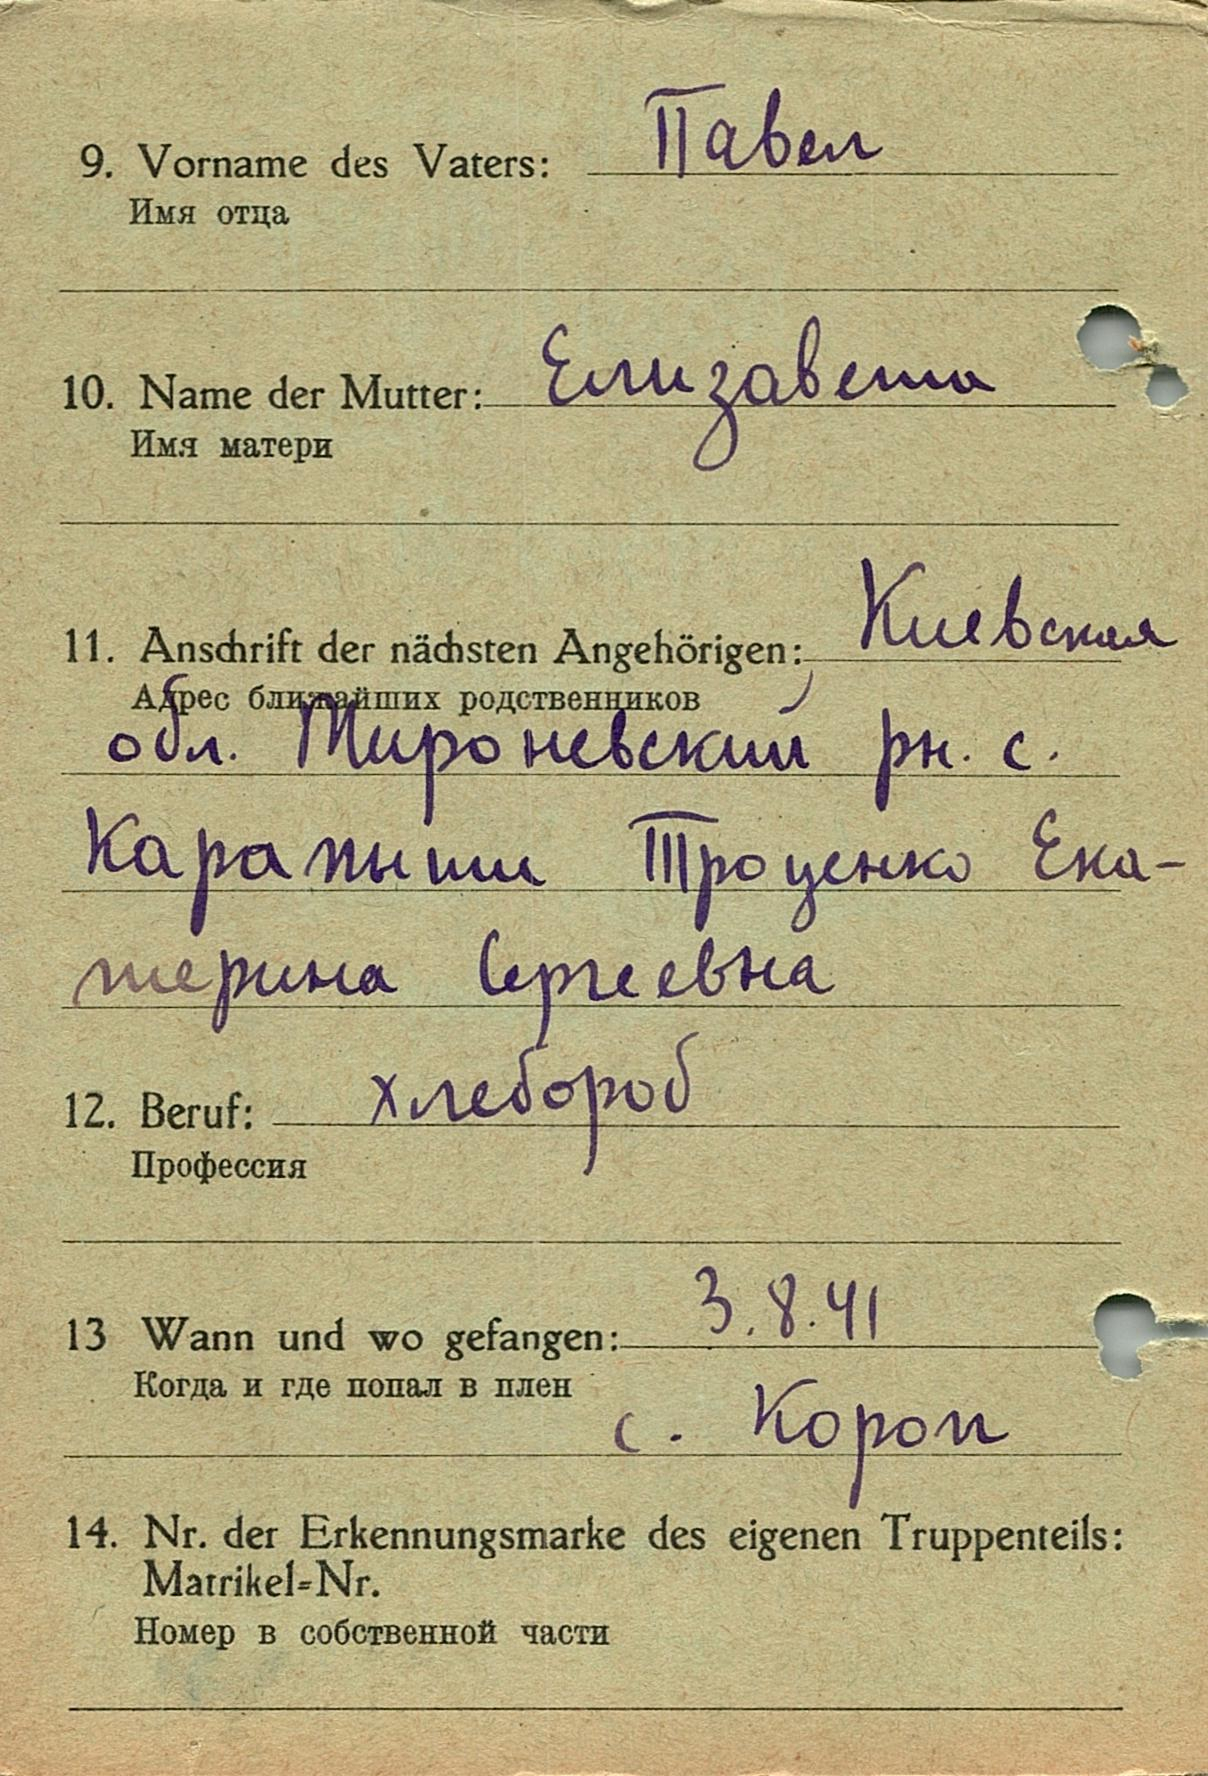 9. Vorname des Vaters: Павел
Имя отца
10. Name der Mutter: Елизавета
Имя матери
11. Anschrift der nächsten Angehörigen: Киевская
Адрес ближайших родственников
обл. Мироневский рн. с.
Карапыши Троценко Ека-
терина Сергеевна
12. Beruf: хлебороб
Профессия
13 Wann und wo gefangen: 3.8.41
Когда и где попал в плен
с. Короп
14. Nr. der Erkennungsmarke des eigenen Truppenteils:
Matrikel=Nr.
Номер в собственной части